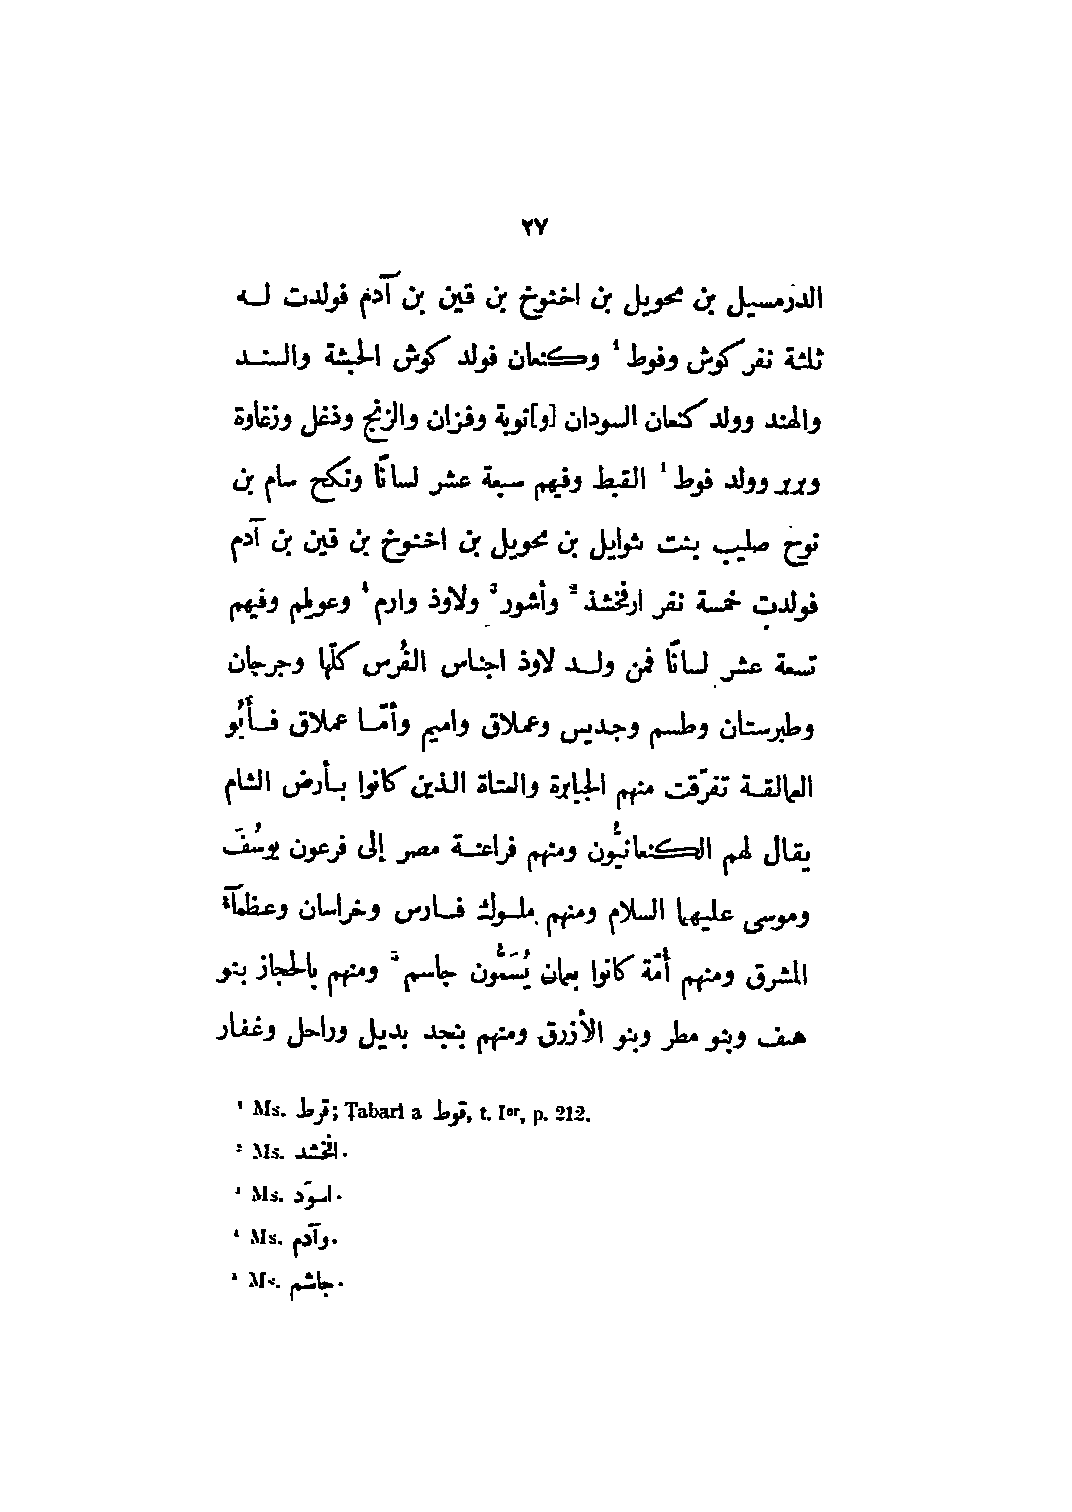 ٢٧
الدرمسيل بن محويل بن اخنوخ بن قين بن آدم فولدت له
ثلثة نفر كوش وفوط ¹ وكنعان فولد كوش الحبشة والسند
والهند وولد كنعان السودان [و]نوبة وفزان والزنج وذغل وزغاوة
وبربر وولد فوط ¹ القبط وفيهم سبعة عشر لسانًا ونكح سام بن
نوح صليب بنت ثوايل بن محويل بن اخنوخ بن قين بن آدم
فولدت خمسة نفر ارفخشذ ² وأشور ³ ولاوذ وارم ⁴ وعويلم وفيهم
تسعة عشر لسانًا فمن ولد لاوذ اجناس الفُرس كلّها وجرجان
وطبرستان وطسم وجديس وعملاق واميم وأمّا عملاق فأَبُو
العمالقة تفرّقت منهم الجبابرة والعتاة الذين كانوا بأرض الشام
يقال لهم الكنعانيُّون ومنهم فراعنة مصر إلى فرعون يوسُفَ
وموسى عليهما السلام ومنهم ملوك فارس وخراسان وعظمآء
المشرق ومنهم أُمّة كانوا بعمان يُسَمُّون جاسم ⁵ ومنهم بالحجاز بنو
هف وبنو مطر وبنو الأزرق ومنهم بنجد بديل وراحل وغفار
¹ Ms. قرط; Ṭabari a قوط, t. Iᵉʳ, p. 212.
² Ms. الفخشد.
³ Ms. اسوّد.
⁴ Ms. وآدم.
⁵ Ms. جاشم.